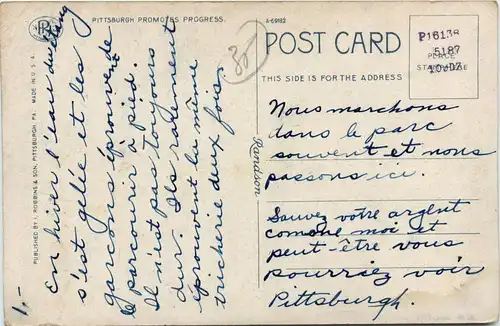 PITTSBURGH PROMOTES PROGRESS.
A-69182
30
POST CARD
THIS SIDE IS FOR THE ADDRESS
P16138
5187
10002
PLACE
STAMP HERE
MADE IN U. S. A.
PUBLISHED BY I. ROBBINS & SON, PITTSBURGH, PA.
1.-
En hiver l'eau du étang
s'est gelée et les
garçons éprouvende
le parcourir à pied.
Il n'est pas toujours
dur. Ils rarement
éprouvent la même
tricherie deux fois.
Randson
Nous marchons
dans le parc
souvent et nous
passons ici.
Sauvez votre argent
comme moi et
peut-être vous
pourriez voir
Pittsburgh.